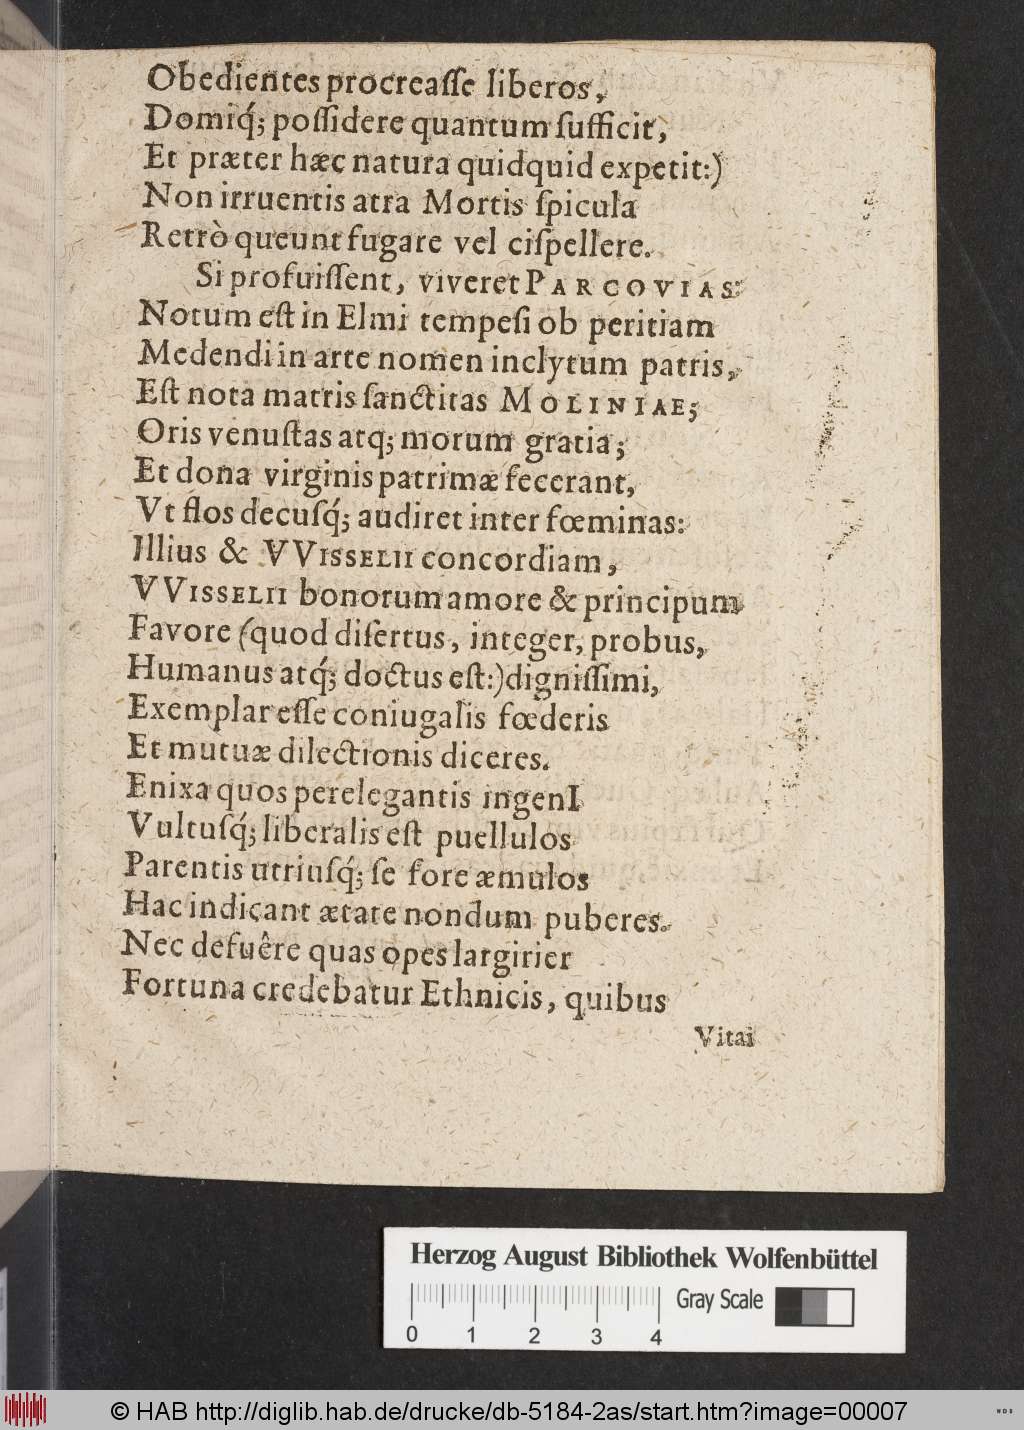 Obedientes procreaſſe liberos,
Domiq́; poſſidere quantum ſufficit,
Et præter hæc natura quidquid expetit:)
Non irruentis atra Mortis ſpicula
Retrò queunt fugare vel ciſpellere.
Si profuiſſent, viveret PARCOVIAS:
Notum eſt in Elmi tempeſi ob peritiam
Medendi in arte nomen inclytum patris,
Eſt nota matris ſanctitas MOLINIAE;
Oris venuſtas atq; morum gratia;
Et dona virginis patrimæ fecerant,
Vt flos decuſq́; audiret inter fœminas:
Illius & VVISSELII concordiam,
VVISSELII bonorum amore & principum
Favore (quod diſertus, integer, probus,
Humanus atq́; doctus eſt:) digniſſimi,
Exemplar eſſe coniugalis fœderis
Et mutuæ dilectionis diceres.
Enixa quos perelegantis ingenI
Vultuſq́; liberalis eſt puellulos
Parentis utriuſq́; ſe fore æmulos
Hac indicant ætate nondum puberes.
Nec defuêre quas opes largirier
Fortuna credebatur Ethnicis, quibus
Vitai
Herzog August Bibliothek Wolfenbüttel
Gray Scale
0 1 2 3 4
© HAB http://diglib.hab.de/drucke/db-5184-2as/start.htm?image=00007
WDB